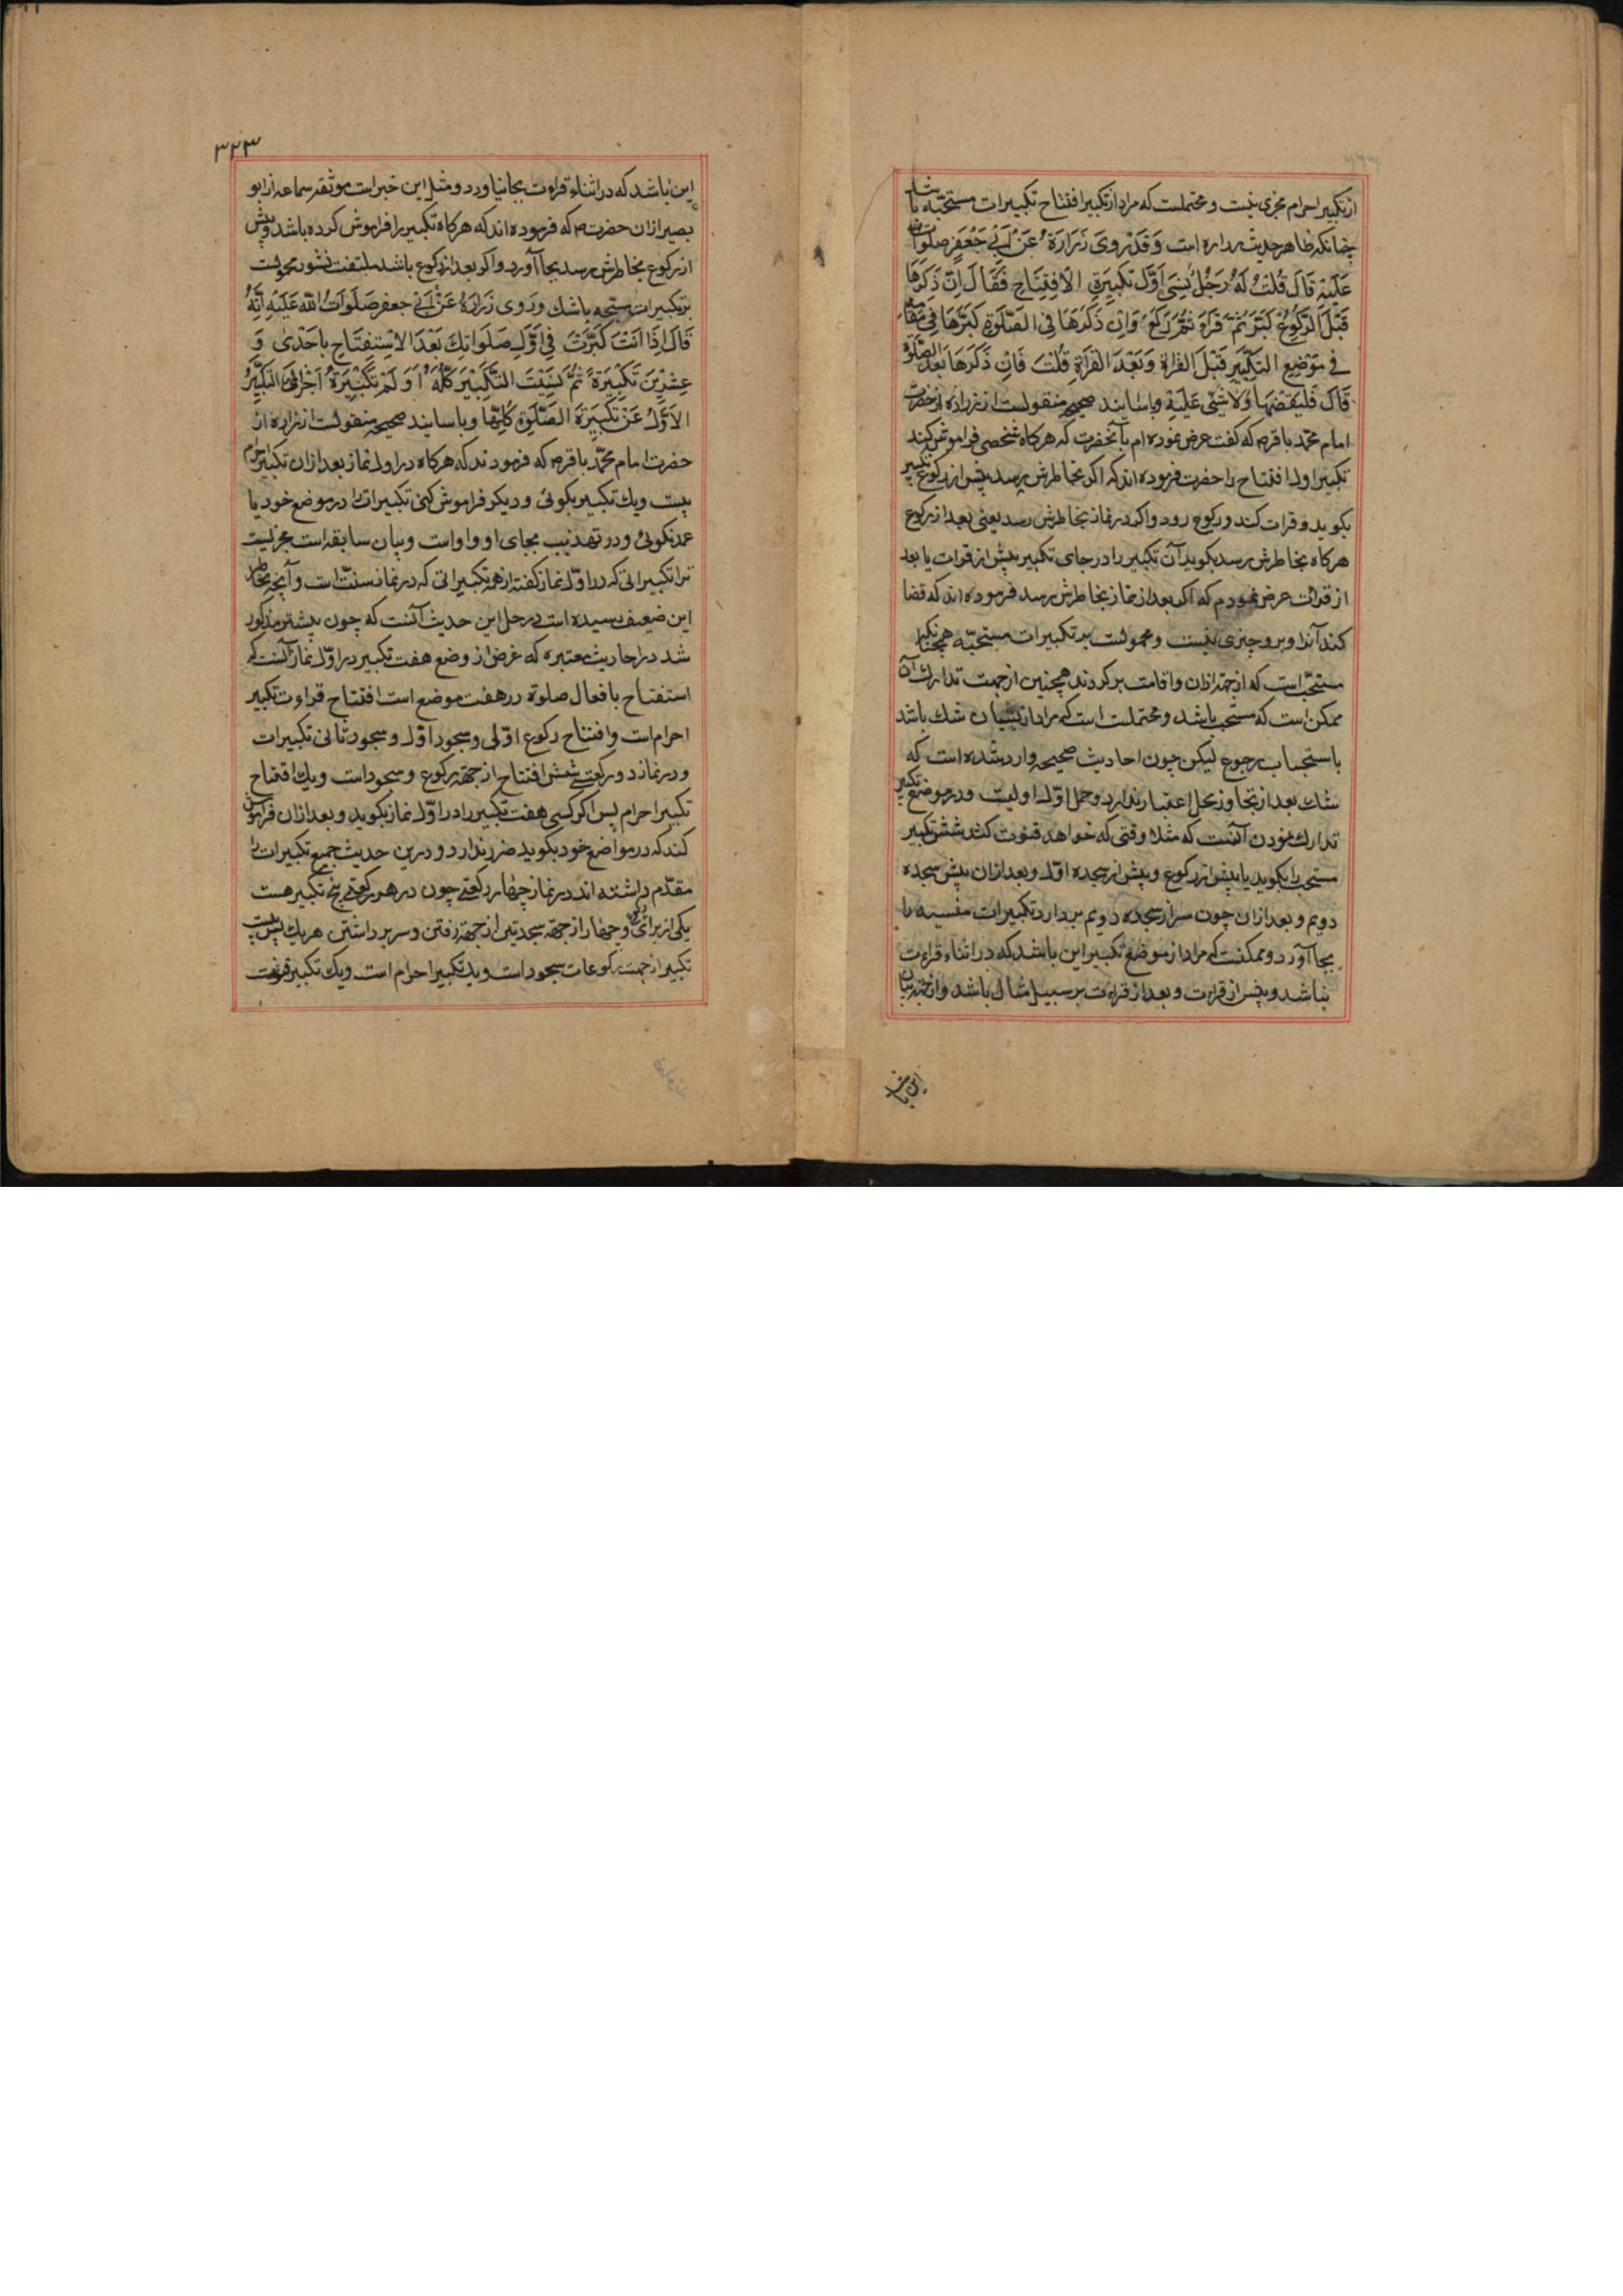 از تکبیر احرام مجزی نیست و محتملست که مراد از تکبیر افتتاح تکبیرات مستحبّه باشد
چنانکه ظاهر حدیث زراره است وَقَدْ رَوىَ زُرَارَةُ عَنْ اَبِي جَعْفَرٍ صَلَوَاتُ اللهِ
عَلَيْهِ قَالَ قُلْتُ لَهُ رَجُلٌ نَسِيَ اَوَّلَ تَكْبِيرَةٍ الاِفْتِتَاحِ فَقَالَ اِنْ ذَكَرَهَا
قَبْلَ الرُّكُوعِ كَبَّرَ ثُمَّ قَرَاَ ثُمَّ رَكَعَ وَاِنْ ذَكَرَهَا فِي الصَّلٰوةِ كَبَّرَهَا فِي مَقَامِهِ
فِي مَوْضِعِ التَّكْبِيرِ قَبْلَ القِرَاةِ وَبَعْدَ القِرَاةِ قُلْتُ فَاِنْ ذَكَرَهَا بَعْدَ الصَّلٰوةِ
قَالَ فَلْيَقْضِهَا وَلاَ شَيْئَ عَلَيْهِ وباسانید صحیحه منقولست از زراره از حضرت
امام محمّد باقرص که گفت عرض نموده ام بآنحضرت که هرکاه شخصی فراموش کند
تکبیر اول افتتاح را حضرت فرموده اند که اکر بخاطرش رسد پیش از رکوع تکبیر
بکوید و قرات کند و رکوع رود و اکر در نماز بخاطرش رسد یعنی بعد از رکوع
هرکاه بخاطرش رسد بکوید آن تکبیر را در جای تکبیر پیش از قرات یا بعد
از قرائت عرض نمودم که اکر بعد از نماز بخاطرش رسد فرموده اند که قضا
کند آنرا و برو چیزی نیست و محمولست بر تکبیرات مستحبّه همچنانکه
مستحبّ است که از جهة اذان و اقامت برکردند همچنین از جهت تدارك آن
ممکن است که مستحب باشد و محتملست است که مراد از نسیان شك باشد
باستحباب رجوع لیکن چون احادیث صحیحه وارد شده است که
شك بعد از تجاوز محل اعتبار ندارد و حمل اوّل اولیست و در موضع تکبیر
تدارك نمودن آنست که مثلا وقتی که خواهد قنوت کند شش تکبیر
مستحب را بکوید یا پیش از رکوع و پیش از سجده اوّل و بعد ازان پیش سجده
دویم و بعد ازان چون سر از سجده دویم بردارد تکبیرات منسیه را
بجا آورد و ممکنست که مراد از موضع تکبیر این باشد که در اثناء قراءت
نباشد و پیش از قراءت و بعد از قراءت بر سبیل مثال باشد و از جهة بیان
این باشد
۳۲۳
این باشد که در اثناء قراءت بجا نیاورد و مثل این خبر است موثقه سماعه از ابو
بصیر از ان حضرت ص که فرموده اند که هرکاه تکبیر را فراموش کرده باشد و پیش
از رکوع بخاطرش رسد بجا آورد و اکر بعد از رکوع باشد ملتفت نشود محمولست
بر تکبیرات مستحبه باشك ورَوى زُرَارَةُ عَنْ اَبِي جعفرٍ صَلَوَاتُ اللهِ عَلَيْهِ اَنَّهُ
قَالَ اِذَا اَنْتَ كَبَّرْتَ فِي اَوَّلِ صَلَوَاتِكَ بَعْدَ الاِسْتِفْتَاحِ بِاِحْدٰى وَ
عِشْرِينَ تَكْبِيرَةً ثُمَّ نَسِيتَ التَّكْبِيرَ كُلَّهُ اَوَ لَمْ تُكَبِّرْهُ اَجْزَاَكَ التَّكْبِيرُ
الاَوَّلُ عَنْ تَكْبِيرَةِ الصَّلٰوةِ كُلِّهَا وباسانید صحیحه منقولست از زراره از
حضرت امام محمّد باقرص که فرمودند که هرکاه در اول نماز بعد ازان تکبیر احرام
بیست ویك تکبیر بکوئی و دیکر فراموش کنی تکبیرات را در موضع خود یا
عمدا نکوئی و در تهذیب بجای او واو است و بیان سابقه است مجزیست
ترا تکبیراتی که در اوّل نماز کفته از همه تکبیراتی که در نماز سنّت است و آنچه بخاطر
این ضعیف رسیده است در حل این حدیث آنست که چون پیشتر مذکور
شد در احادیث معتبره که غرض از وضع هفت تکبیر در اوّل نماز آنست که
استفتاح بافعال صلوة در هفت موضع است افتتاح قراءت تکبیر
احرام است و افتتاح رکوع اوّلی و سجود اوّل و سجود ثانی تکبیرات
و در نماز دو رکعتی شش افتتاح از جهة رکوع و سجود است ویك افتتاح
تکبیر احرام پس اکر کسی هفت تکبیر را در اوّل نماز بکوید و بعد ازان فراموش
کند که در مواضع خود بکوید ضرر ندارد و درین حدیث جمیع تکبیرات را
مقدّم داشته اند در نماز چهار رکعتی چون در هر رکعتی پنج تکبیر هست
یکی از برای رکوع و چهار از جهة سجدتین از جهة رفتن و سر برداشتن هریك پس بیست
تکبیر از جهت رکوعات سجود است ویك تکبیر احرام است ویك تکبیر قنوت